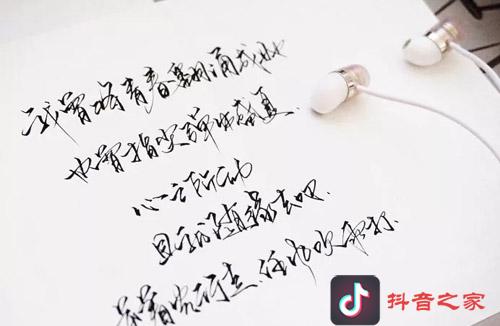 我曾将青春翻涌成她
也曾指尖弹出盛夏.
心之所动
且就随缘去吧.
逆着光行走,任风吹雨打.
抖音之家